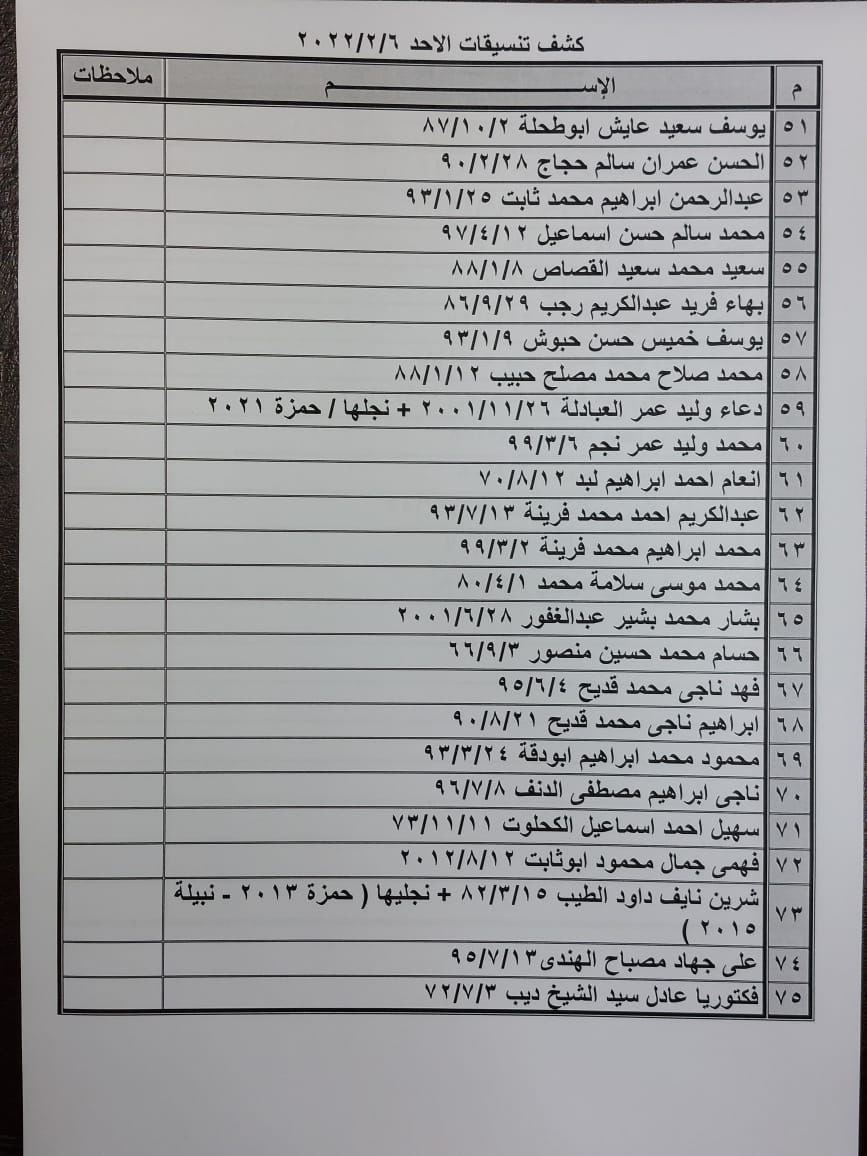 كشف تنسيقات الاحد ٢٠٢٢/٢/٦
م الإســـــــــــــــــــــــــــــــم ملاحظات
٥١ يوسف سعيد عايش ابوطحلة ٨٧/١٠/٢
٥٢ الحسن عمران سالم حجاج ٩٠/٢/٢٨
٥٣ عبدالرحمن ابراهيم محمد ثابت ٩٣/١/٢٥
٥٤ محمد سالم حسن اسماعيل ٩٧/٤/١٢
٥٥ سعيد محمد سعيد القصاص ٨٨/١/٨
٥٦ بهاء فريد عبدالكريم رجب ٨٦/٩/٢٩
٥٧ يوسف خميس حسن حبوش ٩٣/١/٩
٥٨ محمد صلاح محمد مصلح حبيب ٨٨/١/١٢
٥٩ دعاء وليد عمر العبادلة ٢٠٠١/١١/٢٦ + نجلها / حمزة ٢٠٢١
٦٠ محمد وليد عمر نجم ٩٩/٣/٦
٦١ انعام احمد ابراهيم لبد ٧٠/٨/١٢
٦٢ عبدالكريم احمد محمد فرينة ٩٣/٧/١٣
٦٣ محمد ابراهيم محمد فرينة ٩٩/٣/٢
٦٤ محمد موسى سلامة محمد ٨٠/٤/١
٦٥ بشار محمد بشير عبدالغفور ٢٠٠١/٦/٢٨
٦٦ حسام محمد حسين منصور ٦٦/٩/٣
٦٧ فهد ناجى محمد قديح ٩٥/٦/٤
٦٨ ابراهيم ناجى محمد قديح ٩٠/٨/٢١
٦٩ محمود محمد ابراهيم ابودقة ٩٣/٣/٢٤
٧٠ ناجى ابراهيم مصطفى الدنف ٩٦/٧/٨
٧١ سهيل احمد اسماعيل الكحلوت ٧٣/١١/١١
٧٢ فهمى جمال محمود ابوثابت ٢٠١٢/٨/١٢
٧٣ شرين نايف داود الطيب ٨٢/٣/١٥ + نجليها ( حمزة ٢٠١٣ - نبيلة
٢٠١٥ )
٧٤ على جهاد مصباح الهندى ٩٥/٧/١٣
٧٥ فكتوريا عادل سيد الشيخ ديب ٧٢/٧/٣